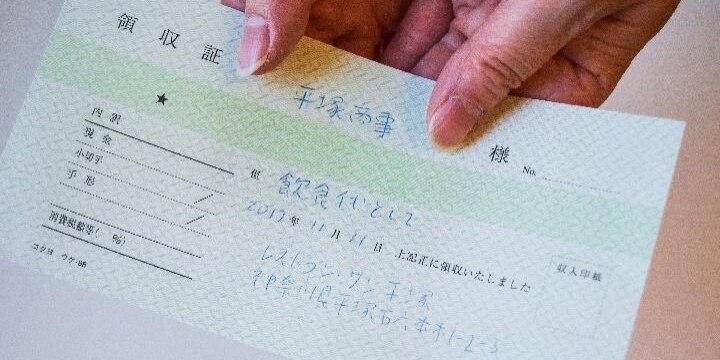 領収証
平塚商事 様
No.
★
内訳
現金
小切手
手形
消費税額等( %)
コクヨ ウケ-98
但 飲食代として
2019年 11月 11日 上記正に領収いたしました
収入印紙
レストラン・ワン平塚
神奈川県平塚市六本木1-2-3